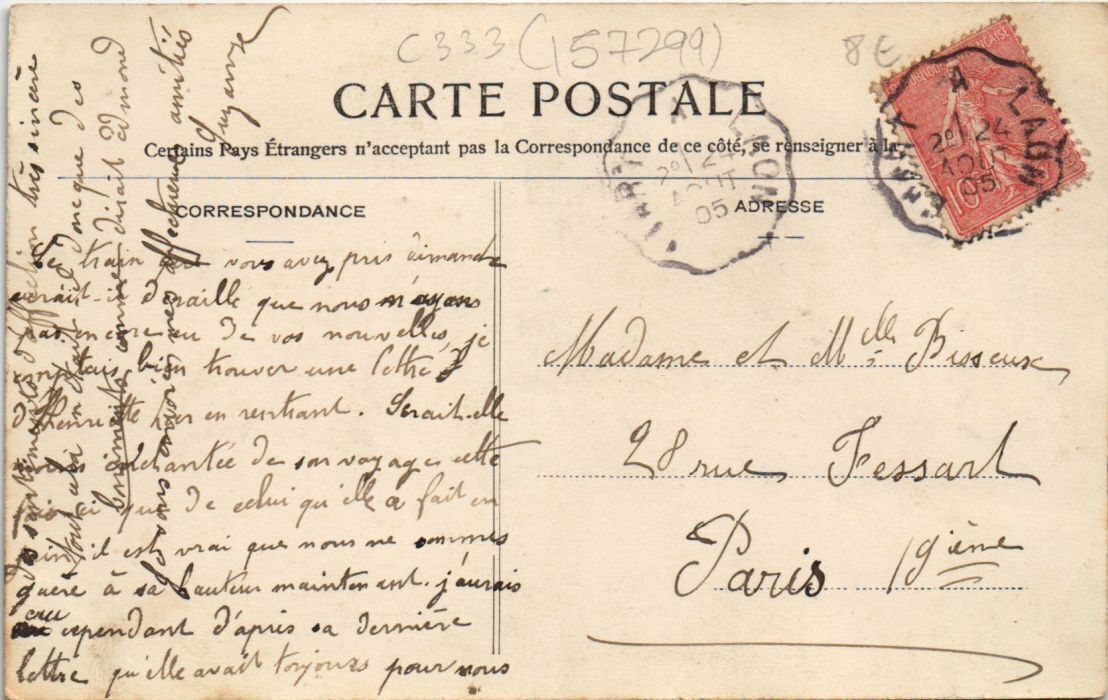 C333 (157299)
8E
CARTE POSTALE
Certains Pays Étrangers n'acceptant pas la Correspondance de ce côté, se renseigner à la
CORRESPONDANCE
Le train que vous avez pris dimanche
aurait-il déraillé que nous n'ayons
pas encore eu de vos nouvelles, je
comptais bien trouver une lettre
d'Henriette hier en rentrant. Serait-elle
moins enchantée de son voyage cette
fois ci que de celui qu'elle a fait en
juin, il est vrai que nous ne sommes
guère à sa hauteur maintenant. j'aurais
cru cependant d'après sa dernière
lettre qu'elle avait toujours pour nous
des sentiments d'affection très sincère
tout ça n'était donc que des
boniments comme disait Edmond
Je vous envoie mes affectueuses amitiés
Suzanne
ADRESSE
Madame et Mlle Bisseux
28 rue Fessart
Paris 19ième
A LAON
24
AOUT
05
A LAON
24
AOUT
05
10